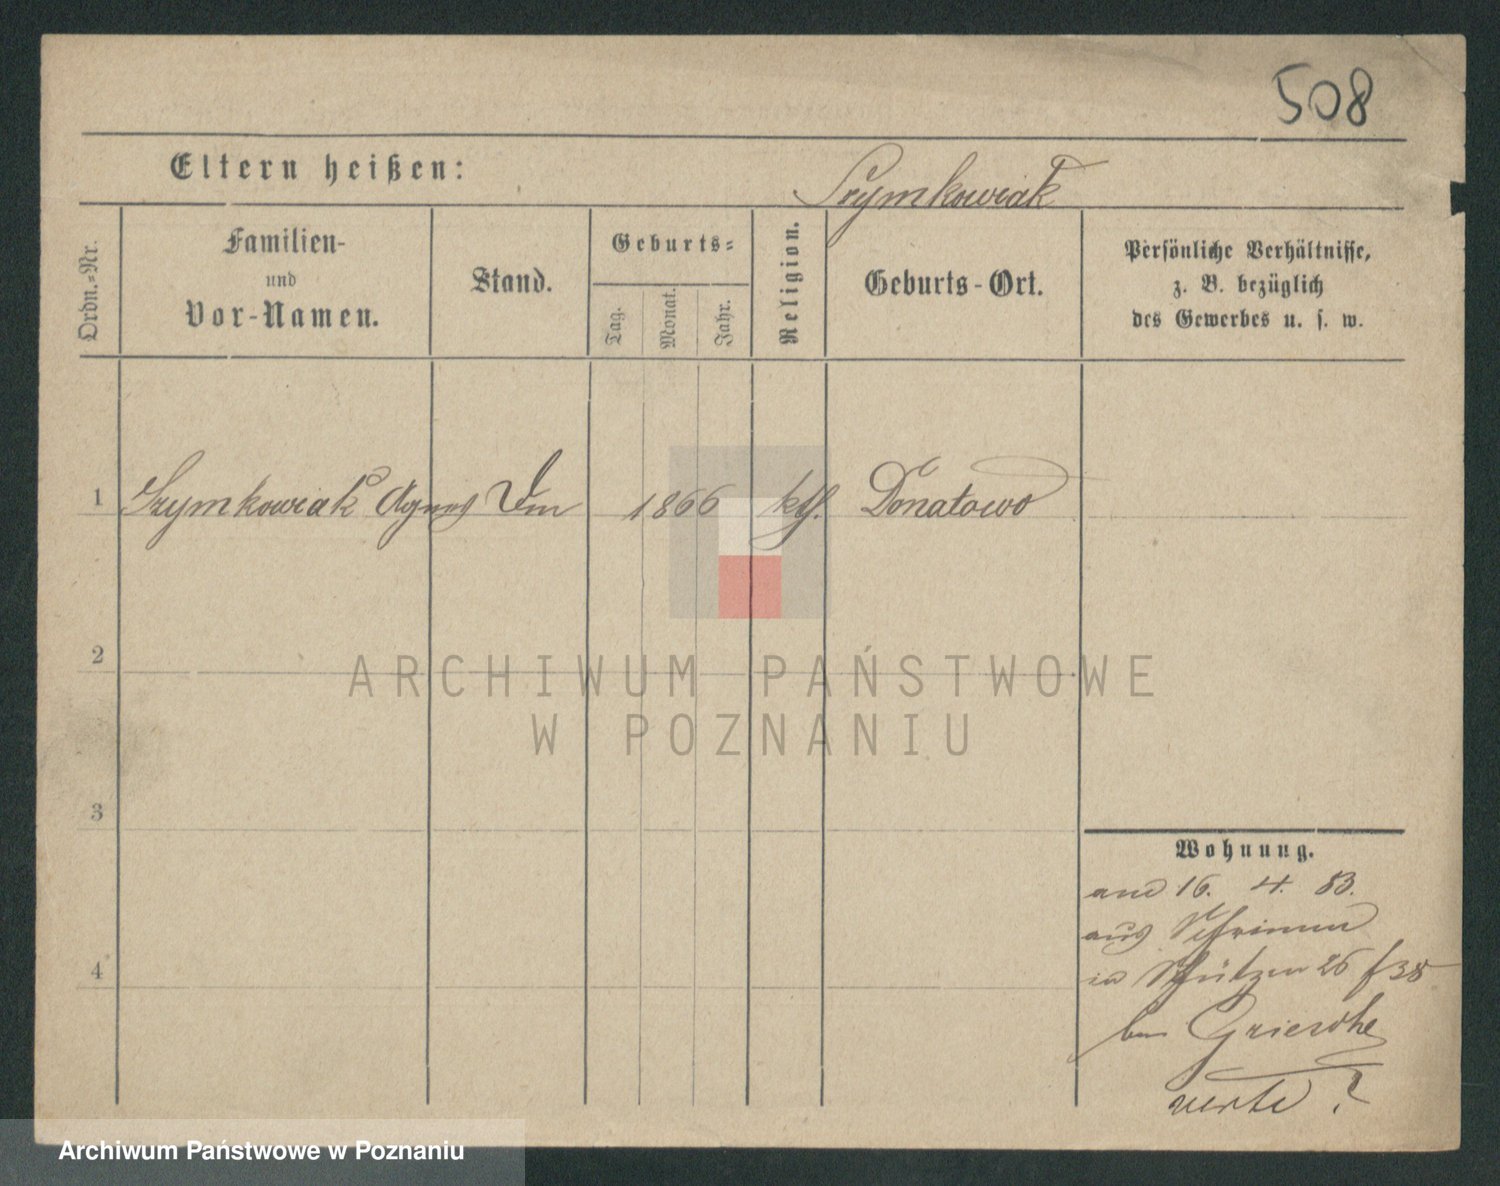 508
Eltern heißen:
Szymkowiak
Ordn.-Nr.
Familien-
und
Vor-Namen.
Stand.
Geburts-
Tag.
Monat.
Jahr.
Religion.
Geburts-Ort.
Persönliche Verhältnisse,
z. B. bezüglich
des Gewerbes u. s. w.
1 Szymkowiak Agnes 1866 kth. Donatowo
2
ARCHIWUM PAŃSTWOWE
W POZNANIU
3
Wohnung.
16. 4. 83.
aus Schrimm
in Schützen 26
4
bei Griesche
verte!
Archiwum Państwowe w Poznaniu